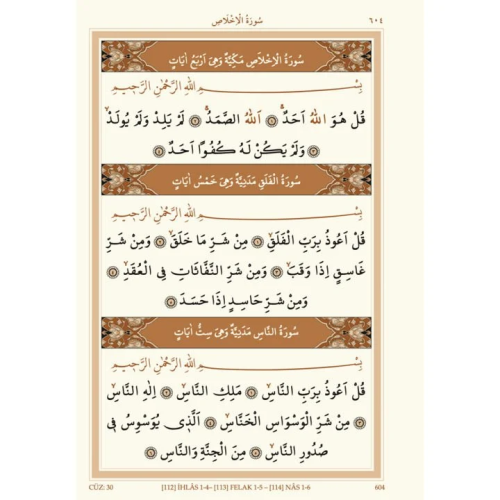 سُورَةُ الْاِخْلَاصِ
٦٠٤
سُورَةُ الْاِخْلَاصِ مَكِّيَّةٌ وَهِىَ اَرْبَعُ اٰيَاتٍ
بِسْمِ اللّٰهِ الرَّحْمٰنِ الرَّحِيمِ
قُلْ هُوَ اللّٰهُ اَحَدٌۚ ﴿١﴾ اَللّٰهُ الصَّمَدُۚ ﴿٢﴾ لَمْ يَلِدْ وَلَمْ يُولَدْۙ
﴿٣﴾ وَلَمْ يَكُنْ لَهُ كُفُوًا اَحَدٌ ﴿٤﴾
سُورَةُ الْفَلَقِ مَدَنِيَّةٌ وَهِىَ خَمْسُ اٰيَاتٍ
بِسْمِ اللّٰهِ الرَّحْمٰنِ الرَّحِيمِ
قُلْ اَعُوذُ بِرَبِّ الْفَلَقِۙ ﴿١﴾ مِنْ شَرِّ مَا خَلَقَۙ ﴿٢﴾ وَمِنْ شَرِّ
غَاسِقٍ اِذَا وَقَبَۙ ﴿٣﴾ وَمِنْ شَرِّ النَّفَّاثَاتِ فِى الْعُقَدِۙ ﴿٤﴾
وَمِنْ شَرِّ حَاسِدٍ اِذَا حَسَدَ ﴿٥﴾
سُورَةُ النَّاسِ مَدَنِيَّةٌ وَهِىَ سِتُّ اٰيَاتٍ
بِسْمِ اللّٰهِ الرَّحْمٰنِ الرَّحِيمِ
قُلْ اَعُوذُ بِرَبِّ النَّاسِۙ ﴿١﴾ مَلِكِ النَّاسِۙ ﴿٢﴾ اِلٰهِ النَّاسِۙ
﴿٣﴾ مِنْ شَرِّ الْوَسْوَاسِ الْخَنَّاسِۙ ﴿٤﴾ اَلَّذِى يُوَسْوِسُ فِى
صُدُورِ النَّاسِۙ ﴿٥﴾ مِنَ الْجِنَّةِ وَالنَّاسِ ﴿٦﴾
CÜZ: 30
[112] İHLÂS 1-4– [113] FELAK 1-5 – [114] NÂS 1-6
604